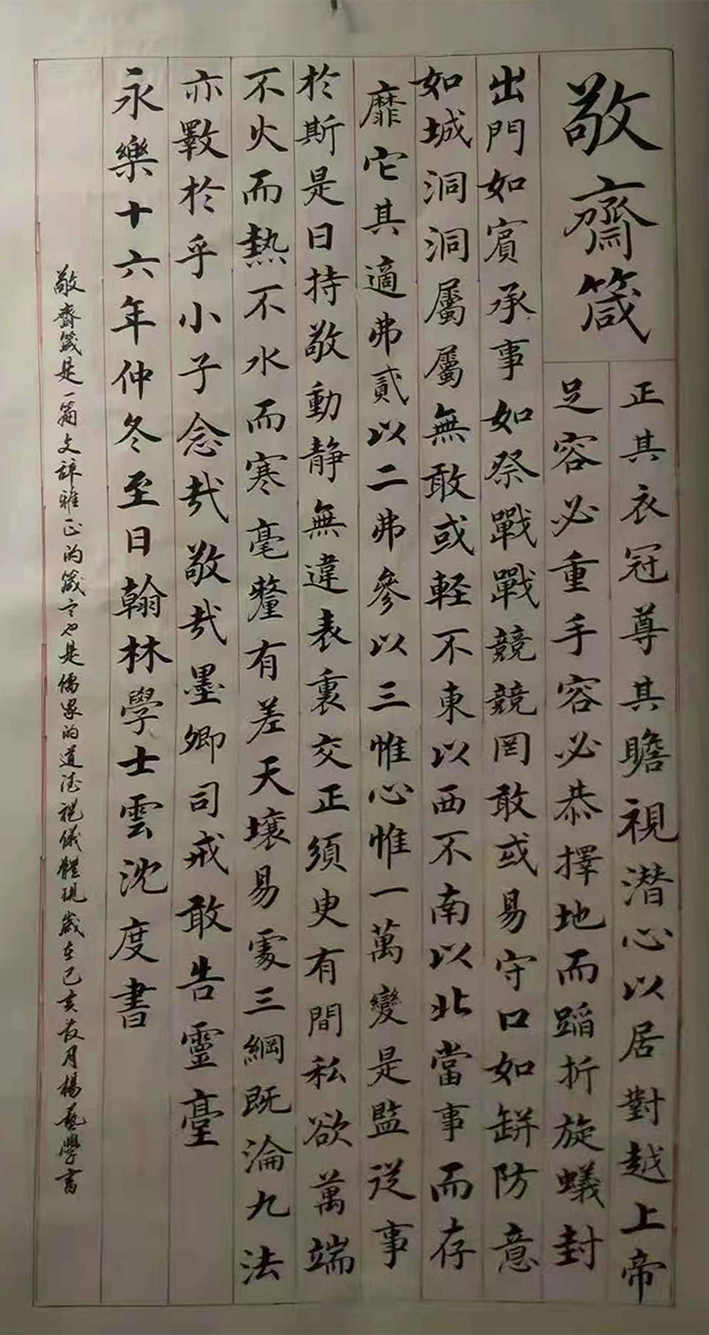 敬齋箴
正其衣冠尊其瞻視潛心以居對越上帝
足容必重手容必恭擇地而蹈折旋蟻封
出門如賓承事如祭戰戰競競罔敢或易守口如缾防意
如城洞洞屬屬無敢或輕不東以西不南以北當事而存
靡它其適弗貳以二弗參以三惟心惟一萬變是監從事
於斯是曰持敬動靜無違表裏交正須臾有間私欲萬端
不火而熱不水而寒毫釐有差天壤易處三綱既淪九法
亦斁於乎小子念哉敬哉墨卿司戒敢告靈臺
永樂十六年仲冬至日翰林學士雲沈度書
敬齋箴是一篇文辞雅正的箴言也是儒家的道德規儀體現歲在己亥 月楊 學書